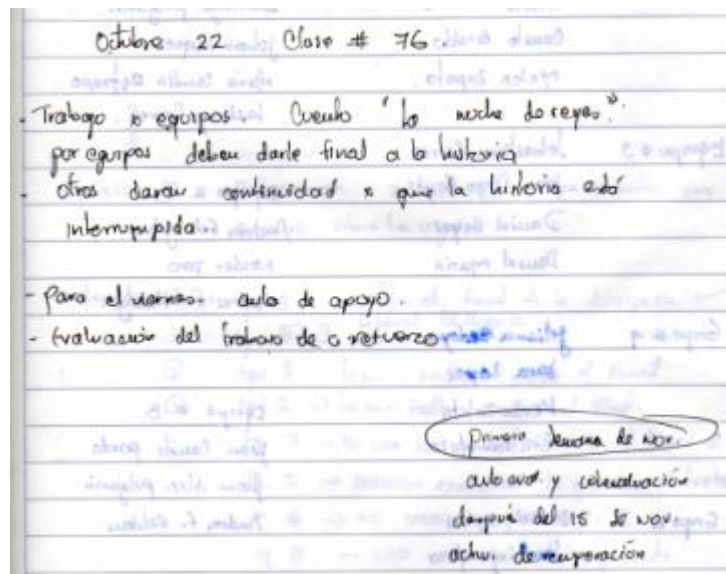 Octubre 22 Clase # 76.
- Trabajo x equipos. Cuento "la noche de reyes".
por equipos deben darle final a la historia
- otros daran continuidad x que la historia está
interrumpida
- para el viernes - aula de apoyo.
- Evaluación del trabajo de refuerzo
primera semana de Nov.
auto eval. y coevaluación
después del 15 de Nov.
activ. de recuperación